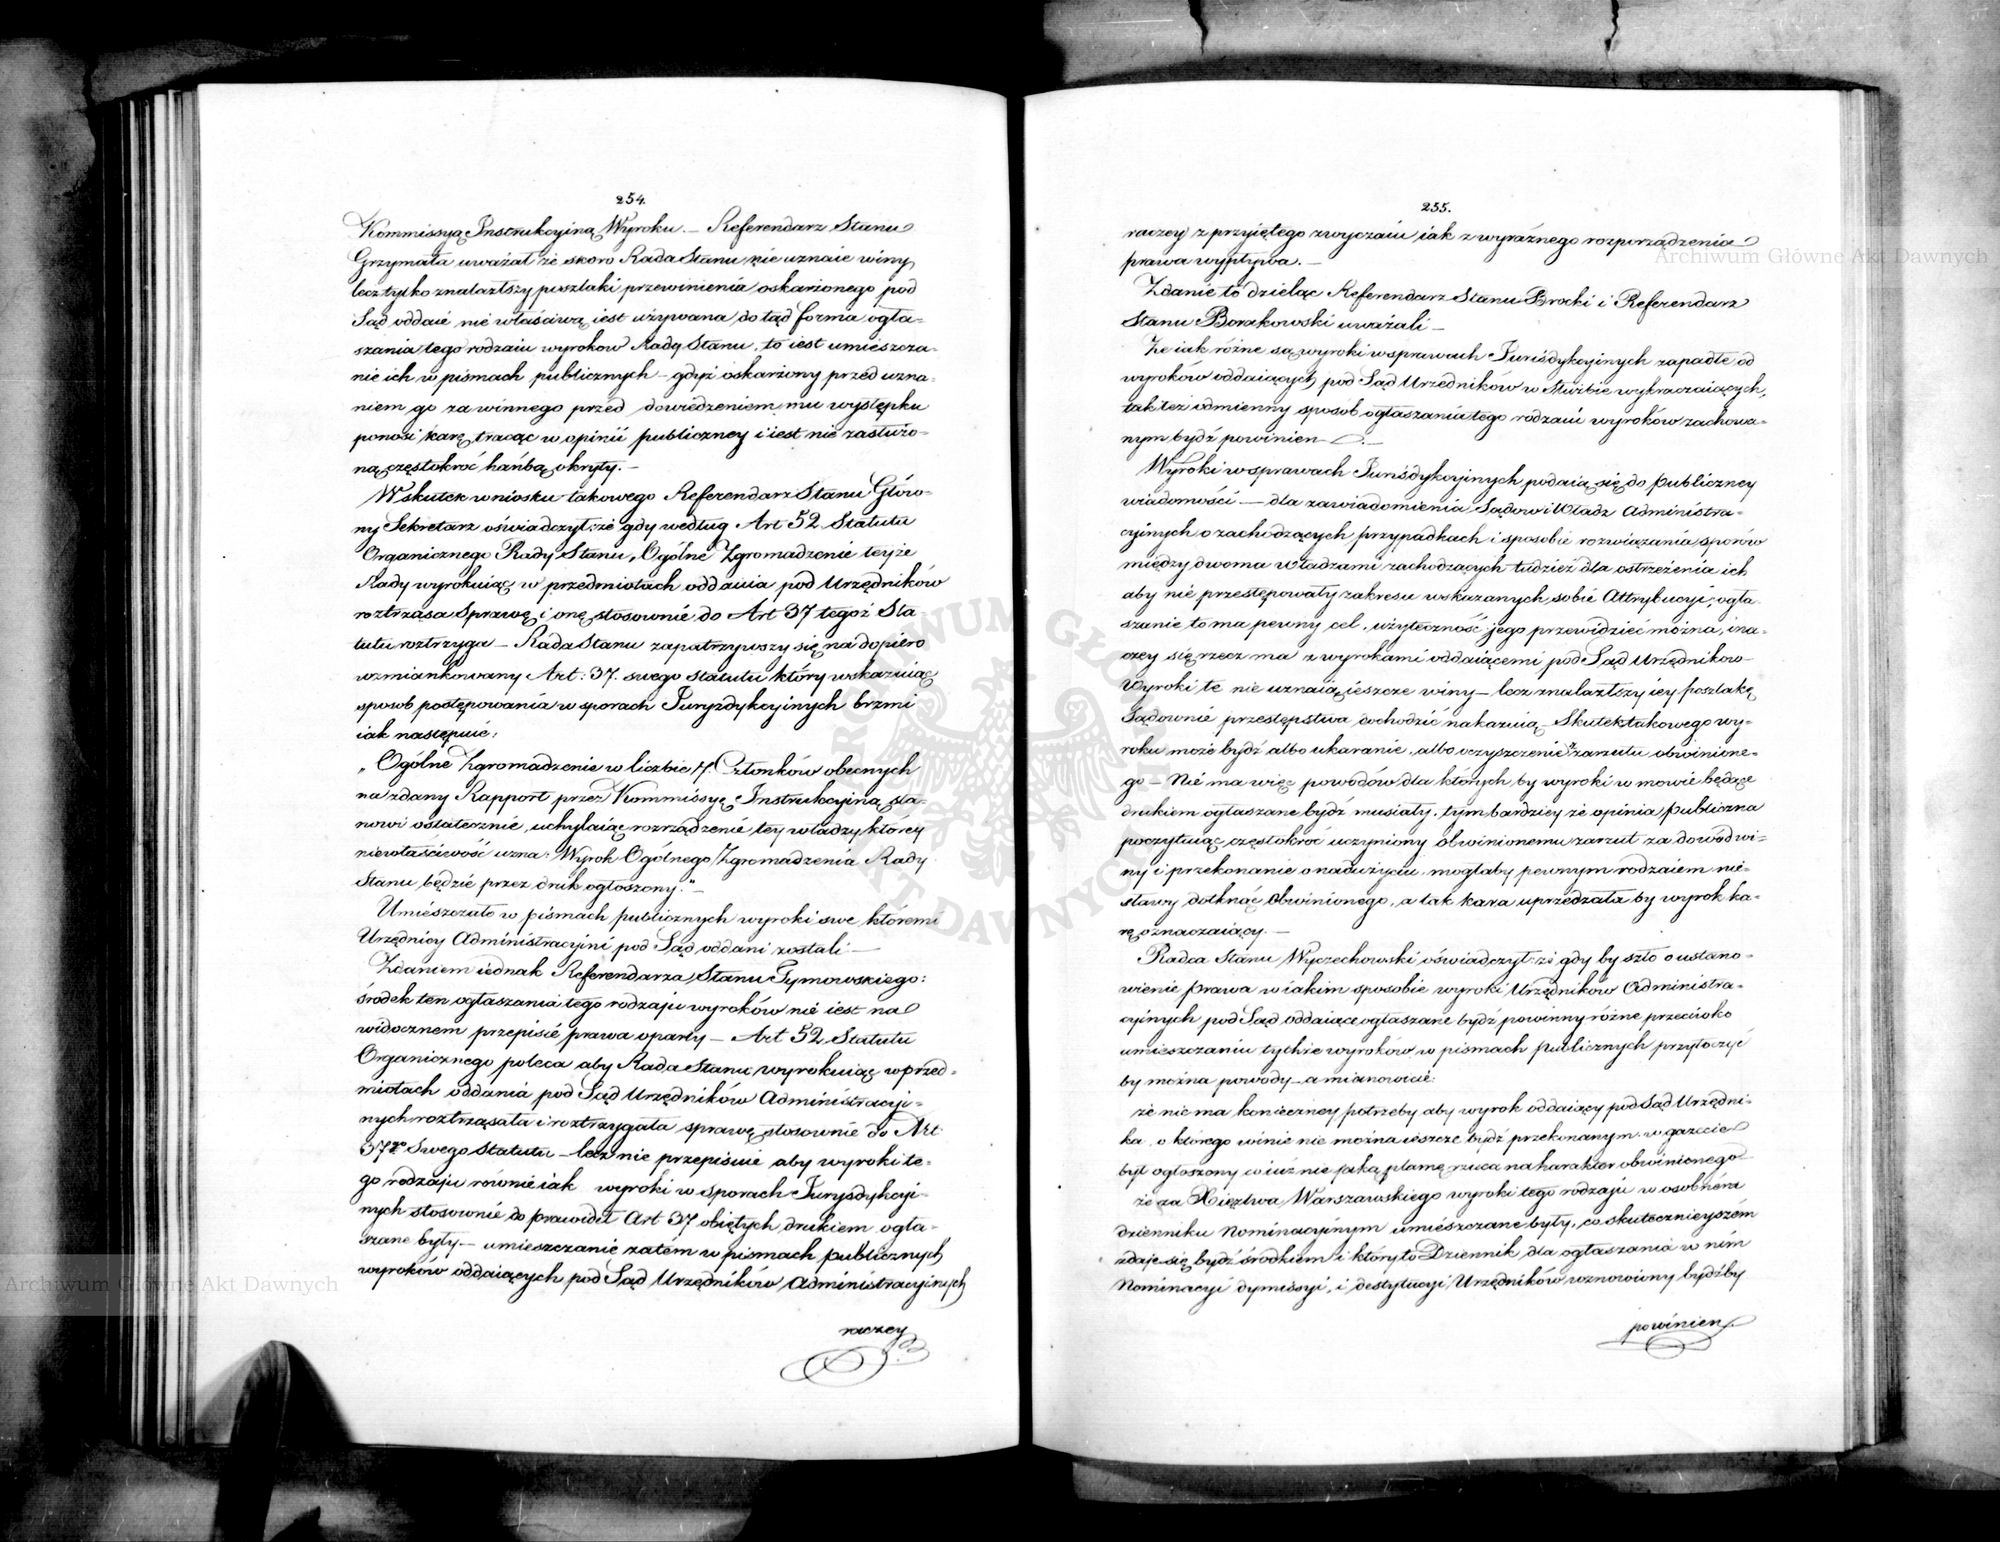 254.
Kommissyą Instrukcyiną Wyroku. — Referendarz Stanu
Grzymała uważał że skoro Rada Stanu nie uznaie winy
lecz tylko znalazłszy poszlaki przewinienia oskarżonego pod
Sąd oddaie nie właściwą iest używana dotąd forma ogła-
szania tego rodzaiu wyroków Rady Stanu, to iest umieszcza-
nie ich w pismach publicznych — gdyż oskarżony przed uzna-
niem go za winnego przed dowiedzeniem mu występku
ponosi karę tracąc w opinii publiczney i iest nie zasłużo-
ną częstokroć hańbą okryty. —
W skutek wniosku takowego Referendarz Stanu Głów-
ny Sekretarz oświadczył: że gdy według Art 52 Statutu
Organicznego Rady Stanu, Ogólne Zgromadzenie teyże
Rady wyrokuiąc w przedmiotach oddania pod Urzędników
roztrząsa Sprawę i onę stosownie do Art 37 tegoż Sta-
tutu roztrzyga — Rada Stanu zapatrzywszy się na dopiero
wzmiankowany Art: 37. swego statutu który wskazuiąc
sposob postępowania w sporach Juryzdykcyinych brzmi
iak następuie:
„Ogólne Zgromadzenie w liczbie 7. Członków obecnych
na zdany Rapport przez Kommissyę Instrukcyiną sta-
nowi ostatecznie, uchylaiąc rozrządzenie tey władzy którey
niewłaściwość uzna: Wyrok Ogólnego Zgromadzenia Rady
Stanu będzie przez druk ogłoszony." —
Umieszczała w pismach publicznych wyroki swe któremi
Urzędnicy Administracyini pod Sąd oddani zostali —
Zdaniem iednak Referendarza Stanu Tymowskiego:
środek ten ogłaszania tego rodzaju wyroków nie iest na
widocznem przepisie prawa oparty — Art 52 Statutu
Organicznego poleca aby Rada Stanu wyrokuiąc w przed-
miotach oddania pod Sąd Urzędników Administracyi-
nych roztrząsała i roztrzygała sprawę stosownie do Art
37go Swego Statutu — lecz nie przepisuie aby wyroki te-
go rodzaju równie iak wyroki w sporach Jurysdykcyi-
nych stosownie do prawideł Art 37 obiętych drukiem ogła-
szane były — umieszczanie zatem w pismach publicznych
wyroków oddaiących pod Sąd Urzędników Administracyinych
raczey
255.
raczey z przyiętego zwyczaiu iak z wyraźnego rozporządzenia
prawa wypływa. —
Zdanie to dzieląc Referendarz Stanu Brocki i Referendarz
Stanu Borakowski uważali —
Że iak różne są wyroki w sprawach Jurisdykcyinych zapadłe od
wyroków oddaiących pod Sąd Urzędników w służbie wykraczaiących,
tak też odmienny sposób ogłaszania tego rodzaiu wyroków zachowa-
nym bydź powinien —.—
Wyroki w sprawach Jurisdykcyinych podaią się do publiczney
wiadomości — dla zawiadomienia Sądow i Władz Administra-
cyinych o zachodzących przypadkach i sposobie rozwiązania sporów
między dwoma władzami zachodzących tudzież dla ostrzeżenia ich
aby nie przestępowały zakresu wskazanych sobie Attrybucyi, ogła-
szanie to ma pewny cel, użyteczność jego przewidzieć można, ina-
czey się rzecz ma z wyrokami oddaiącemi pod Sąd Urzędników
Wyroki te nie uznaią ieszcze winy — lecz znalazłszy iey poszlakę
Sądownie przestępstwa dochodzić nakazuią — Skutek takowego wy-
roku może bydź albo ukaranie, albo oczyszczenie z zarzutu obwinione-
go — Nie ma więc powodów dla których by wyroki w mowie będące
drukiem ogłaszane bydź musiały, tym bardziey że opinia publiczna
poczytuiąc częstokroć uczyniony obwinionemu zarzut za dowód wi-
ny i przekonanie o nadużyciu, mogłaby pewnym rodzaiem nie-
sławy dotknąć Obwinionego, a tak kara uprzedzała by wyrok ka-
rę oznaczaiący. —
Radca Stanu Wyczechowski oświadczył: że gdy by szło o ustano-
wienie prawa w iakim sposobie wyroki Urzędników Administra-
cyinych pod Sąd oddaiące ogłaszane bydź powinny różne przeciwko
umieszczaniu tychże wyroków w pismach publicznych przytoczyć
by można powody — a mianowicie:
że nie ma konieczney potrzeby aby wyrok oddaiący pod Sąd Urzędni-
ka, o którego winie nie można ieszcze bydź przekonanym, w gazecie
był ogłoszony co iuż nie jaką plamę rzuca na charakter obwinionego
że za Xięztwa Warszawskiego wyroki tego rodzaju w osobném
dzienniku Nominacyinym umieszczane były, co skutecznieyszém
zdaje się bydź środkiem i który to Dziennik dla ogłaszania w nim
Nominacyi dymissyi, i destytucyi Urzędników wznowiony bydźby
powinien.
Archiwum Główne Akt Dawnych
Archiwum Główne Akt Dawnych
ARCHIWUM GŁÓWNE AKT DAWNYCH